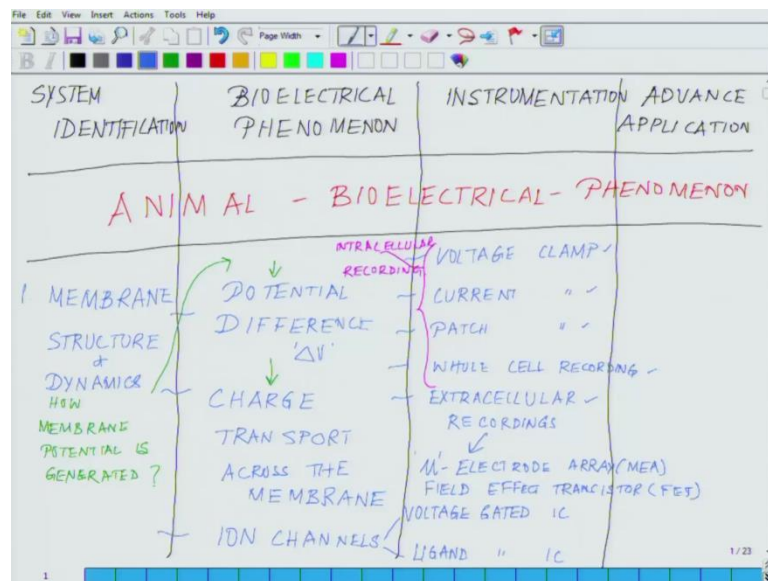 File Edit View Insert Actions Tools Help
Page Width
B I
SYSTEM
IDENTIFICATION
BIOELECTRICAL
PHENOMENON
INSTRUMENTATION
ADVANCE
APPLICATION
ANIMAL - BIOELECTRICAL - PHENOMENON
1 MEMBRANE
STRUCTURE
&
DYNAMICS
HOW
MEMBRANE
POTENTIAL IS
GENERATED ?
POTENTIAL
DIFFERENCE
'ΔV'
CHARGE
TRANSPORT
ACROSS THE
MEMBRANE
ION CHANNELS
INTRACELLULAR
RECORDING
VOLTAGE CLAMP
CURRENT " "
PATCH " "
WHOLE CELL RECORDING
EXTRACELLULAR
RECORDINGS
'μ'- ELECTRODE ARRAY (MEA)
FIELD EFFECT TRANCISTOR (FET)
VOLTAGE GATED IC
LIGAND " IC
1 / 23
1